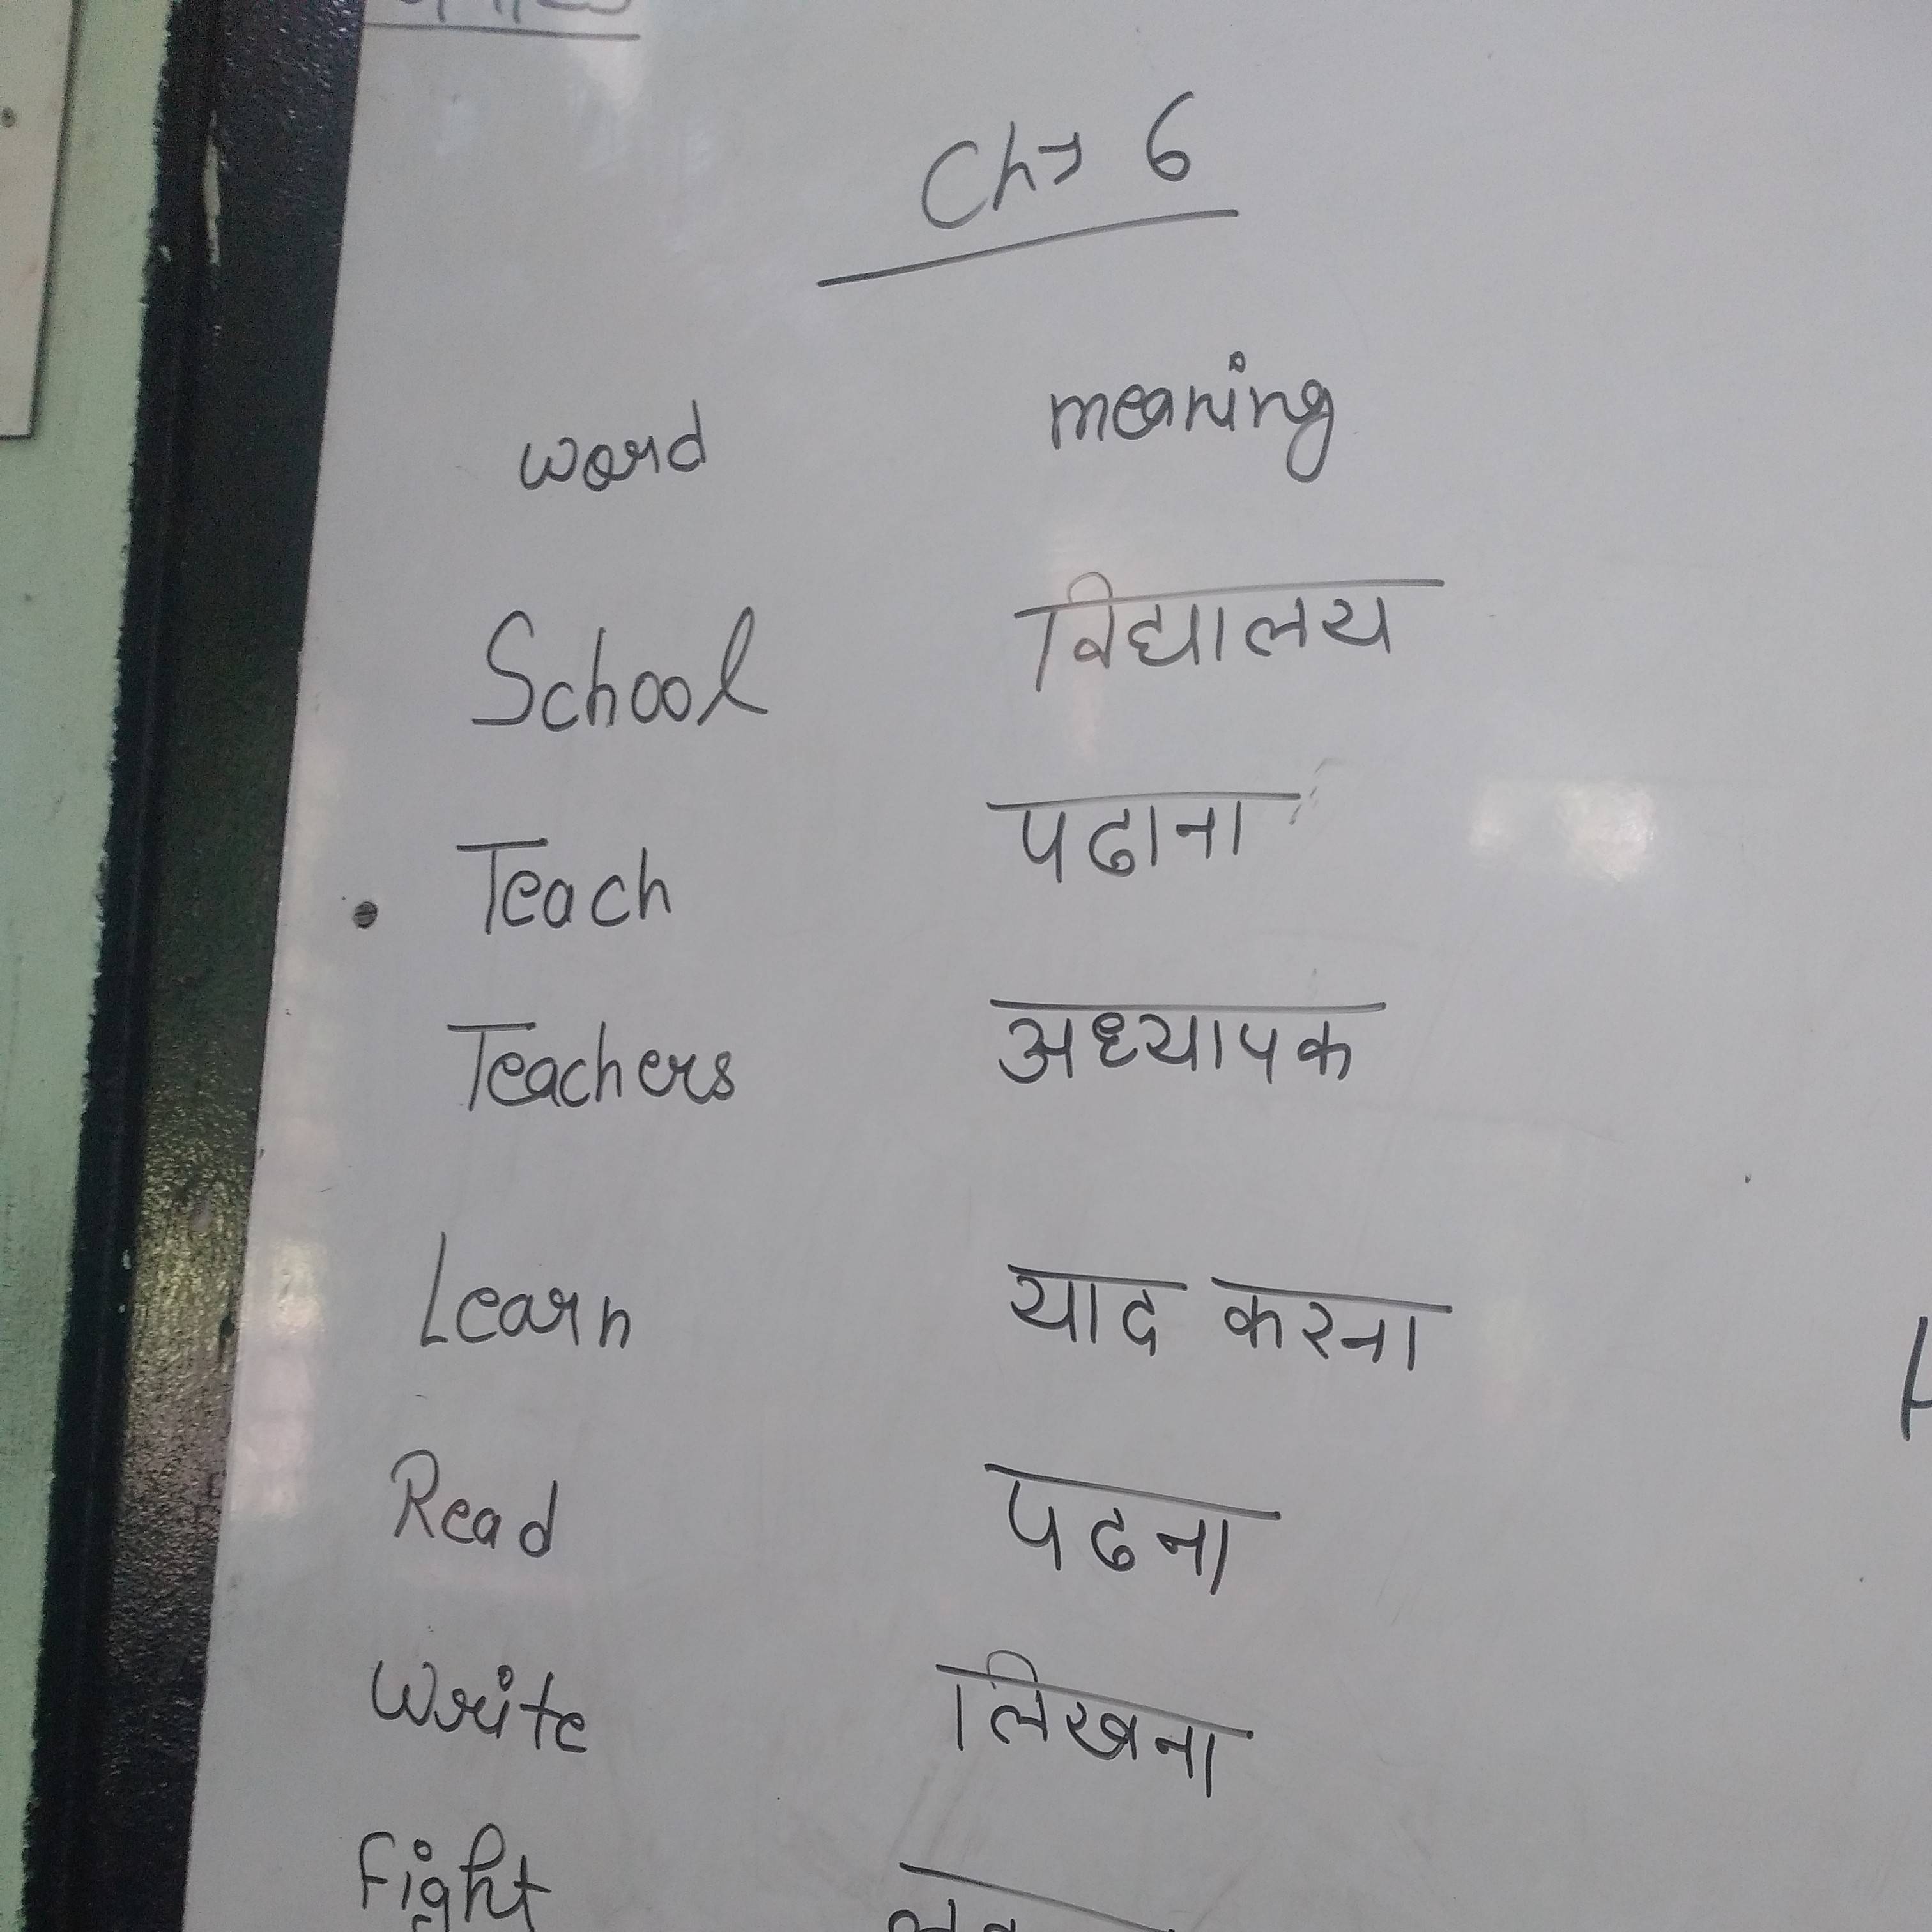 Ch→ 6
word meaning
School विद्यालय
Teach पढाना
Teachers अध्यापक
Learn याद करना
Read पढना
Write लिखना
Fight